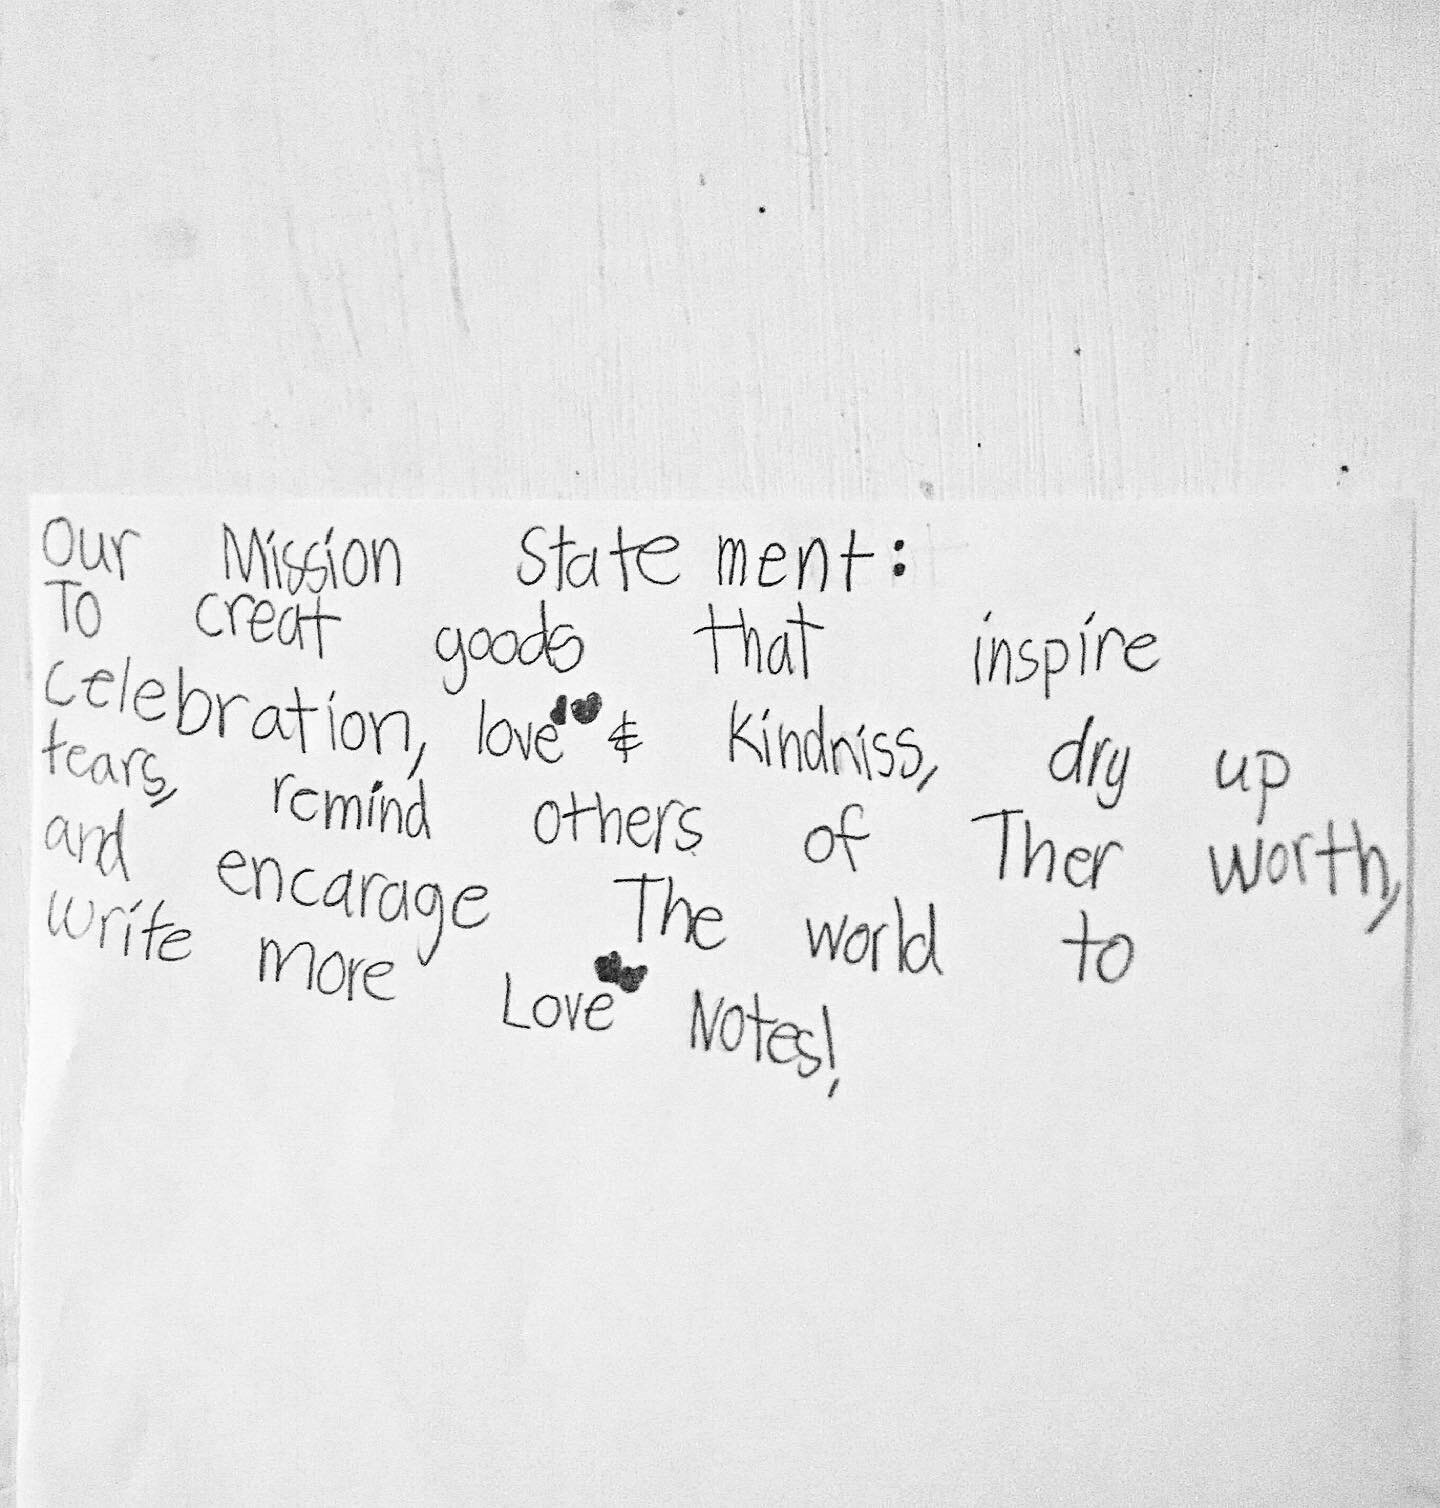 Our Mission Statement:
To creat goods that inspire
celebration, love & kindniss, dry up
tears, remind others of Ther worth,
and encarage The world to
write more Love Notes!